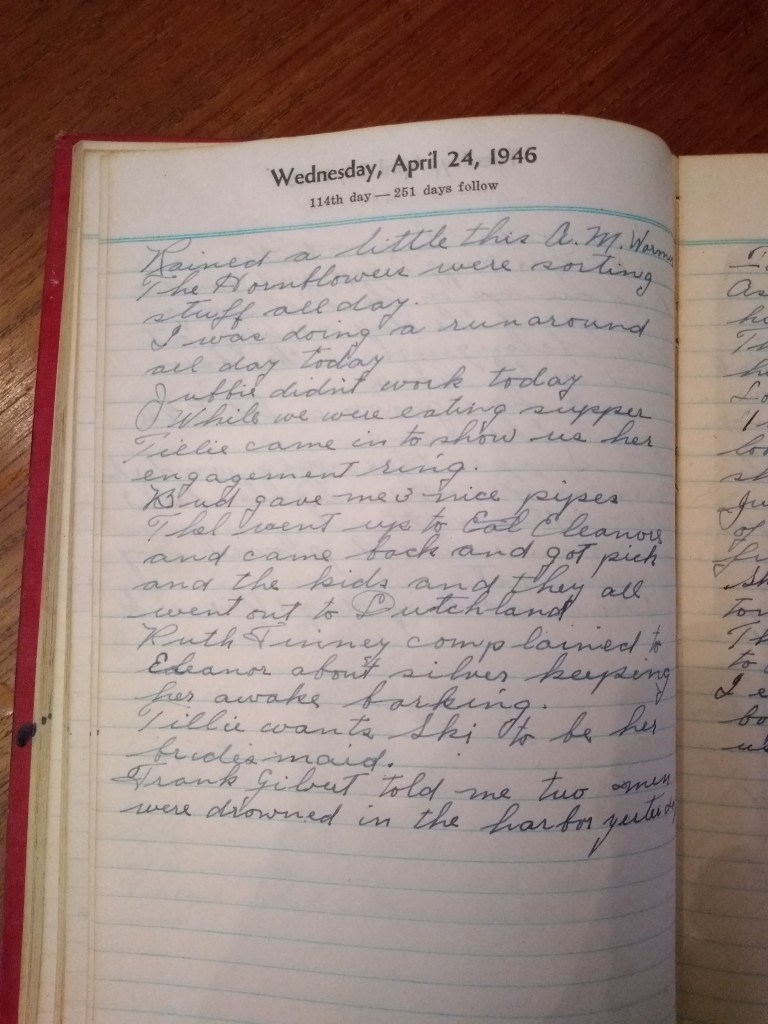 Wednesday, April 24, 1946
114th day — 251 days follow
Rained a little this A.M. Warmer
The Hornflowers were sorting
stuff all day.
I was doing a runaround
all day today
Jubbie didn't work today
While we were eating supper
Tillie came in to show us her
engagement ring.
Bud gave me 3 nice pipes
Thel went up to Eleanors
and came back and got pick
and the kids and they all
went out to Dutchland
Ruth Finney complained to
Eleanor about silver keeping
her awake barking.
Tillie wants Ski to be her
bridesmaid.
Frank Gilbut told me two men
were drowned in the harbor